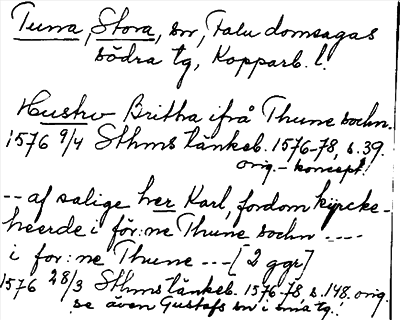 Tuna, Stora, sn, Falu domsagas
södra tg, Kopparb. l.
Hustrv Britha ifrå Thune sochn.
1576 9/4 Sthms tänkeb. 1576-78, s. 39.
orig. - koncept!
-- af salige her Karl, fordom kyrcke-
heerde i för:ne Thune sochn ----
i for:ne Thune --- [2 ggr]
1576 28/3 Sthms tänkeb. 1576-78, s. 148, orig.
se även Gustafs sn i sma tg.